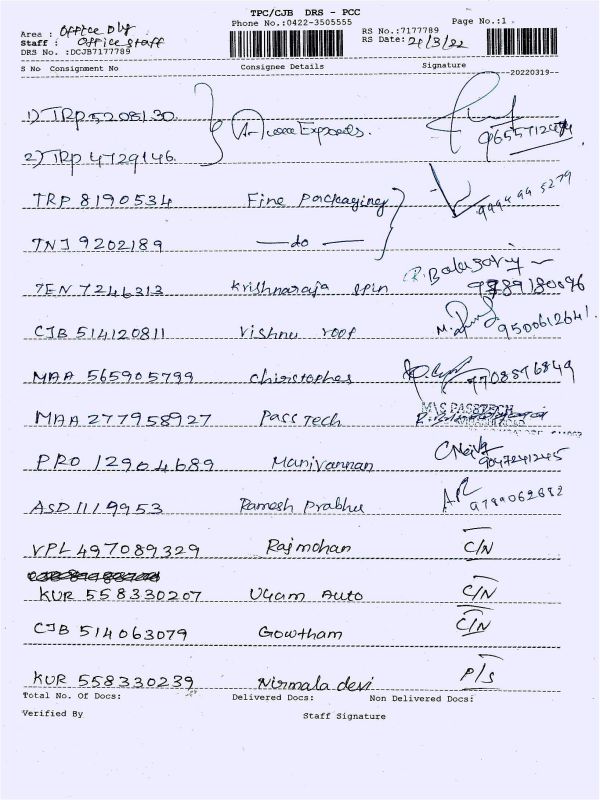 TPC/CJB DRS - PCC
Phone No.:0422-3505555
Page No.:1
Area : Office Dly
Staff : Office staff
DRS No. :DCJB7177789
RS No.:7177789
RS Date: 21/3/22
S No Consignment No Consignee Details Signature
20220319
1) TRP 5208130
Exports.
2) TRP 4729146
TRP 8190534 Fine Packaging
TNJ 9202189 — do —
TEN 7246313 Krishnaraja Spin
CJB 514120811 Vishnu roof 9500612641.
MAA 565905799 Christopher 9708576849
MAA 277958927 Pass Tech M/S PASSTECH
PRO 12904689 Manivannan 9047241245
ASD 1119953 Ramesh Prabhu 9789062682
VPL 497089329 Rajmohan C/N
KUR 558330207 Ugam Auto C/N
CJB 514063079 Gowtham C/N
KUR 558330239 Nirmala devi P/S
Total No. Of Docs: Delivered Docs: Non Delivered Docs:
Verified By Staff Signature